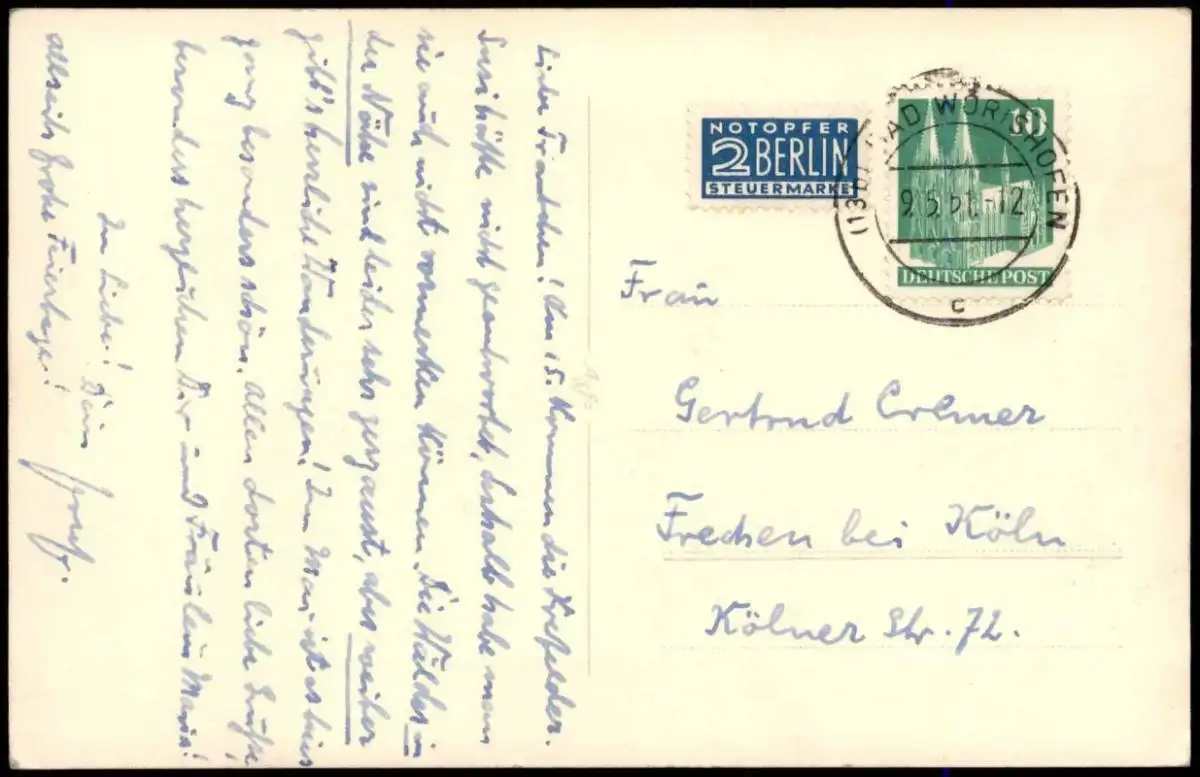 Liebe Traudchen! Am 15. kommen die Krefelder.
Susi hätte nicht geantwortet, deshalb habe man
sie auch nicht vormerken können. Die Wälder in
der Nähe sind leider sehr gezaust, aber weiter
gibt's herrliche Wanderungen! Im Mai ist es hier
ganz besonders schön. Allen dorten liebe Grüße,
besonders herzlichen Dir und Fräulein Maria!
allseits frohe Feiertage!
In Liebe! Dein
Josef.
NOTOPFER
2 BERLIN
STEUERMARKE
10
DEUTSCHE POST
(13b) BAD WÖRISHOFEN
9.5.51.-12
c
Frau
Gertrud Cremer
Frechen bei Köln
Kölner Str. 72.